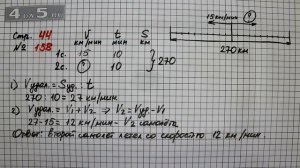 4 5
Стр. 44
№ 158
V км/мин t мин S км
1с. 15 10
2с. ? 10
} 270
15 км/мин ?
270 км
1) Vудал. = Sуд. : t
270 : 10 = 27 км/мин
2) Vудал. = V1 + V2 ⇒ V2 = Vуд - V1
27 - 15 = 12 км/мин - V2 самолёта
Ответ: второй самолёт летел со скоростью 12 км/мин.